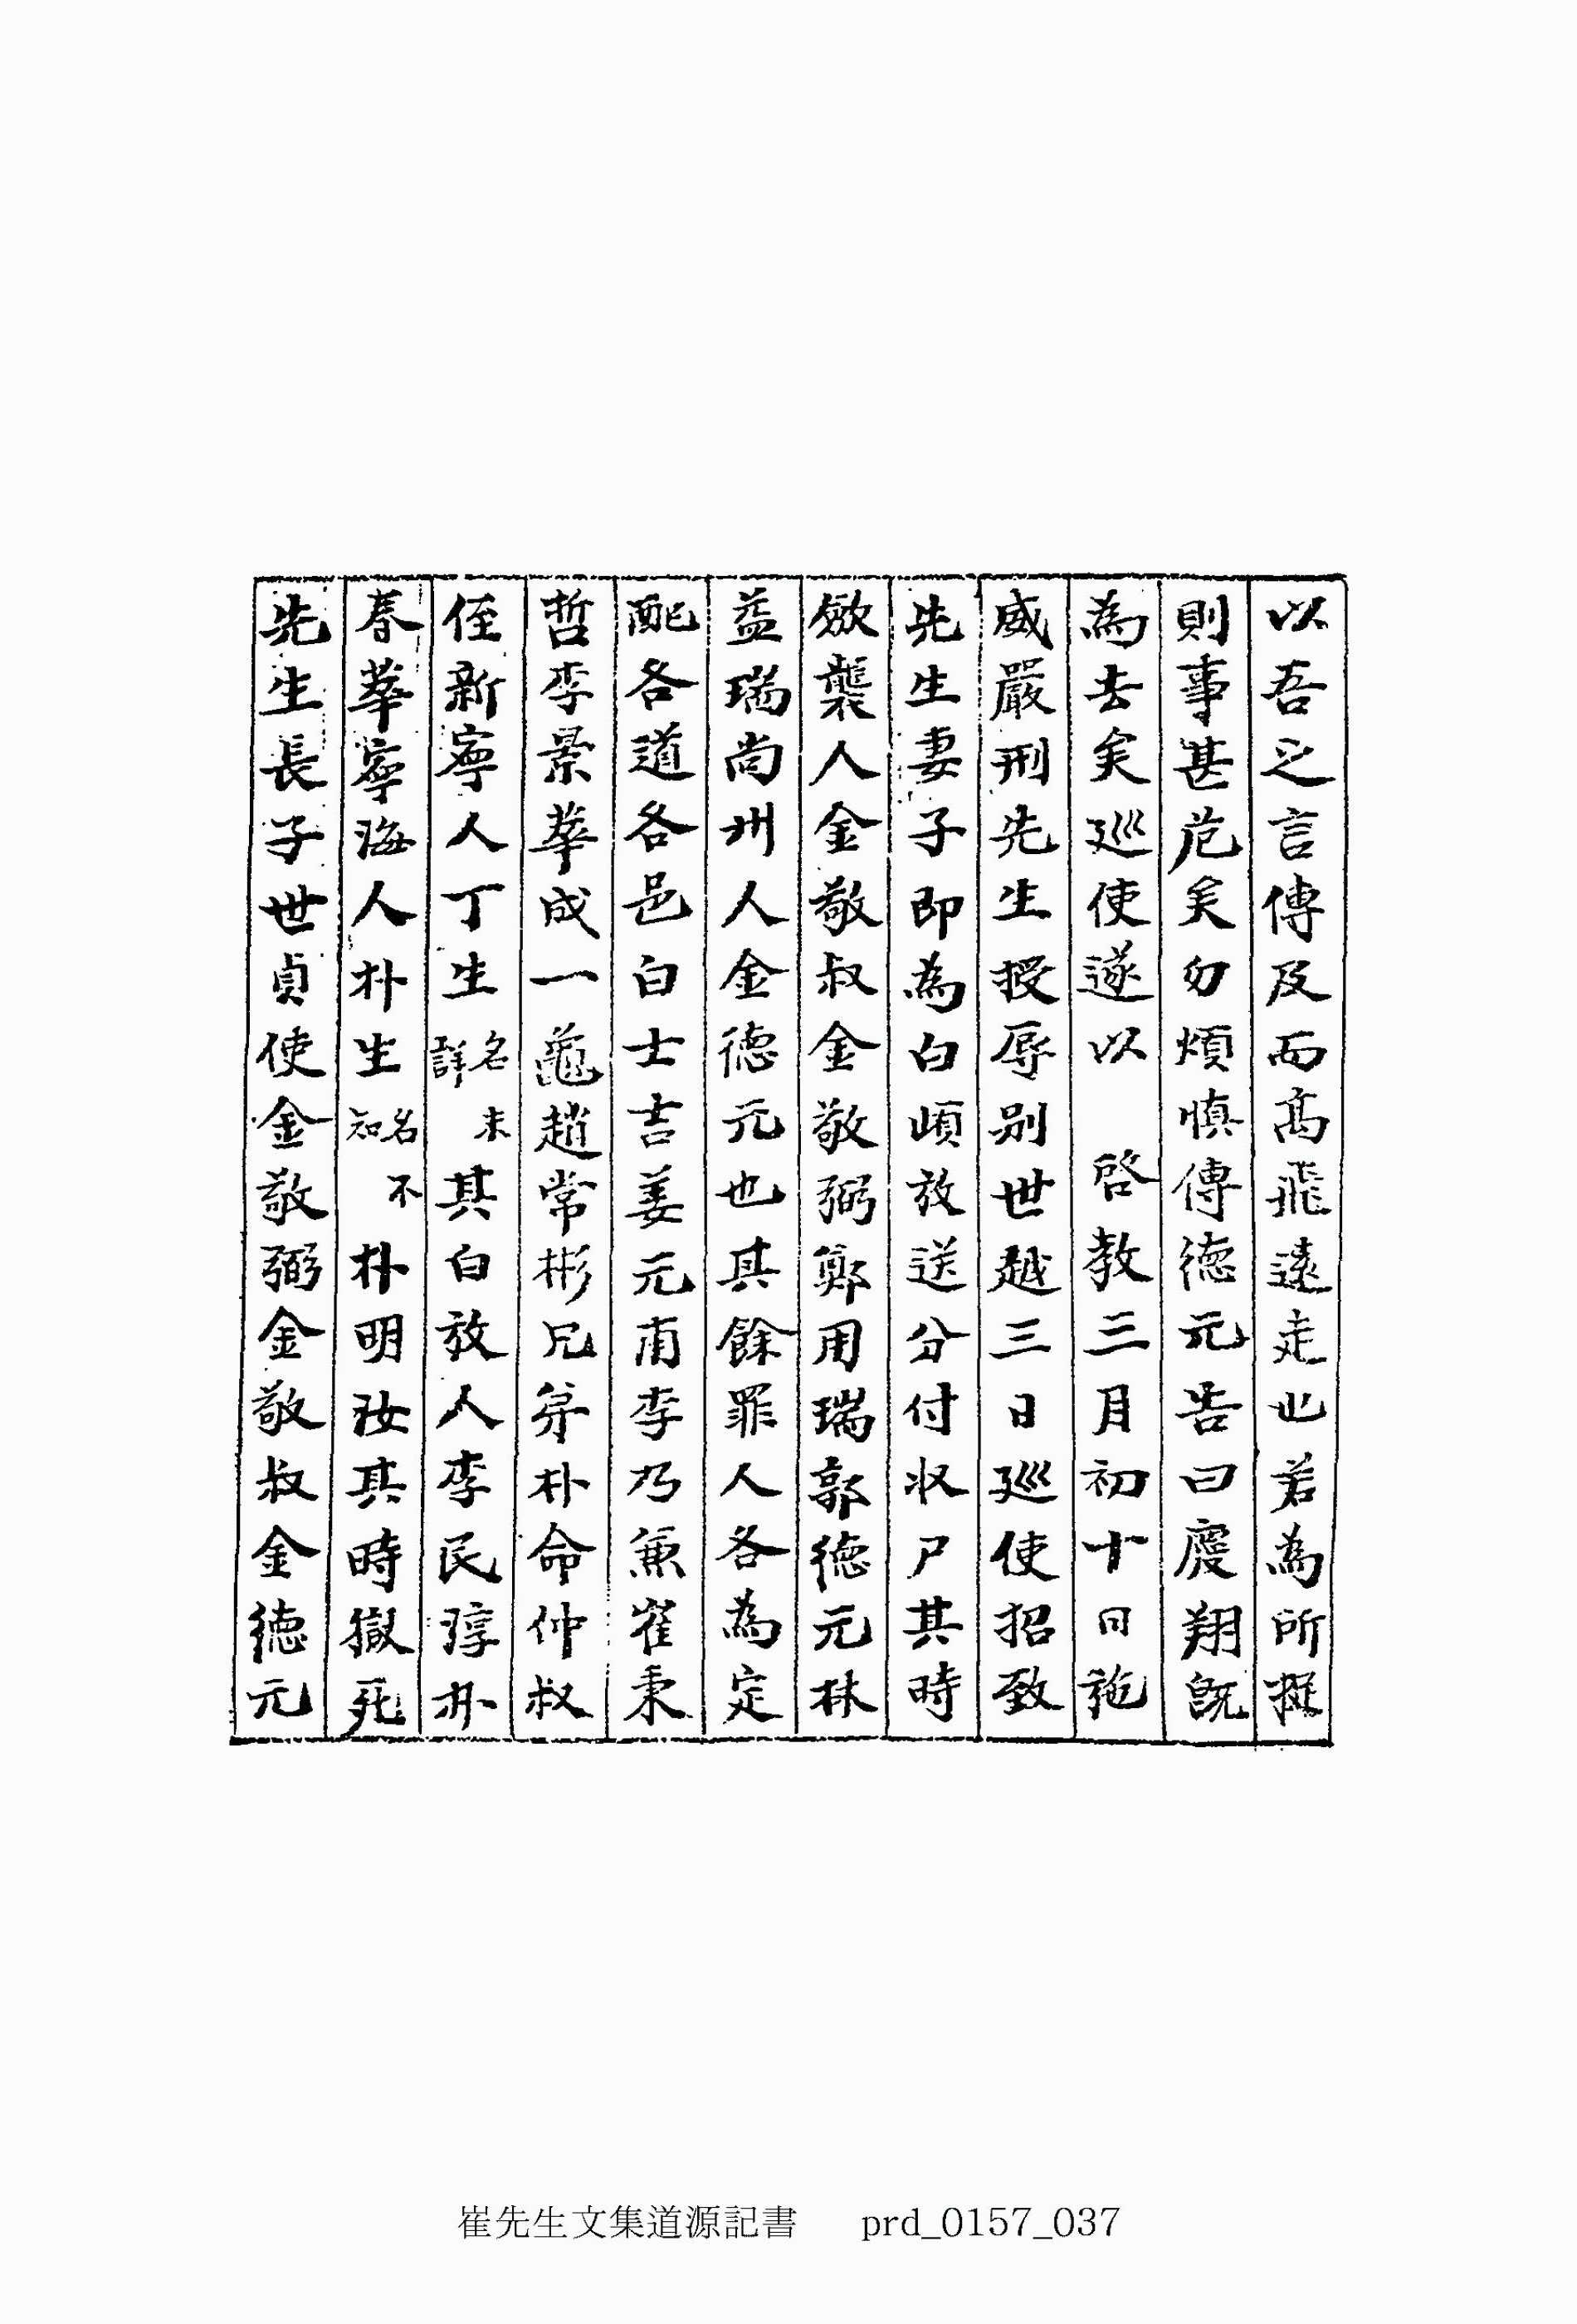 以吾之言傳及而高飛遠走也若為所捉
則事甚危矣勿煩愼傳德元告曰慶翔旣
為去矣巡使遂以 啓教三月初十日施
威嚴刑先生授辱別世越三日巡使招致
先生妻子即為白頉放送分付收尸其時
斂襲人金敬叔金敬弼鄭用瑞郭德元林
益瑞尙州人金德元也其餘罪人各為定
配各道各邑白士吉姜元甫李乃兼崔秉
哲李景華成一龜趙常彬兄弟朴命仲叔
侄新寧人丁生名未詳其白放人李民淳朴
春華寧海人朴生名不知朴明汝其時獄死
先生長子世貞使金敬弼金敬叔金德元
崔先生文集道源記書 prd_0157_037